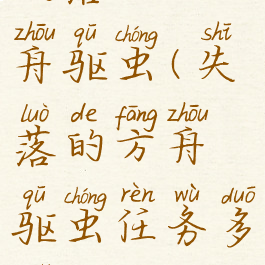 zhōu qū chóng shī
舟驱虫(失
luò de fāng zhōu
落的方舟
qū chóng rèn wù duō
驱虫任务多